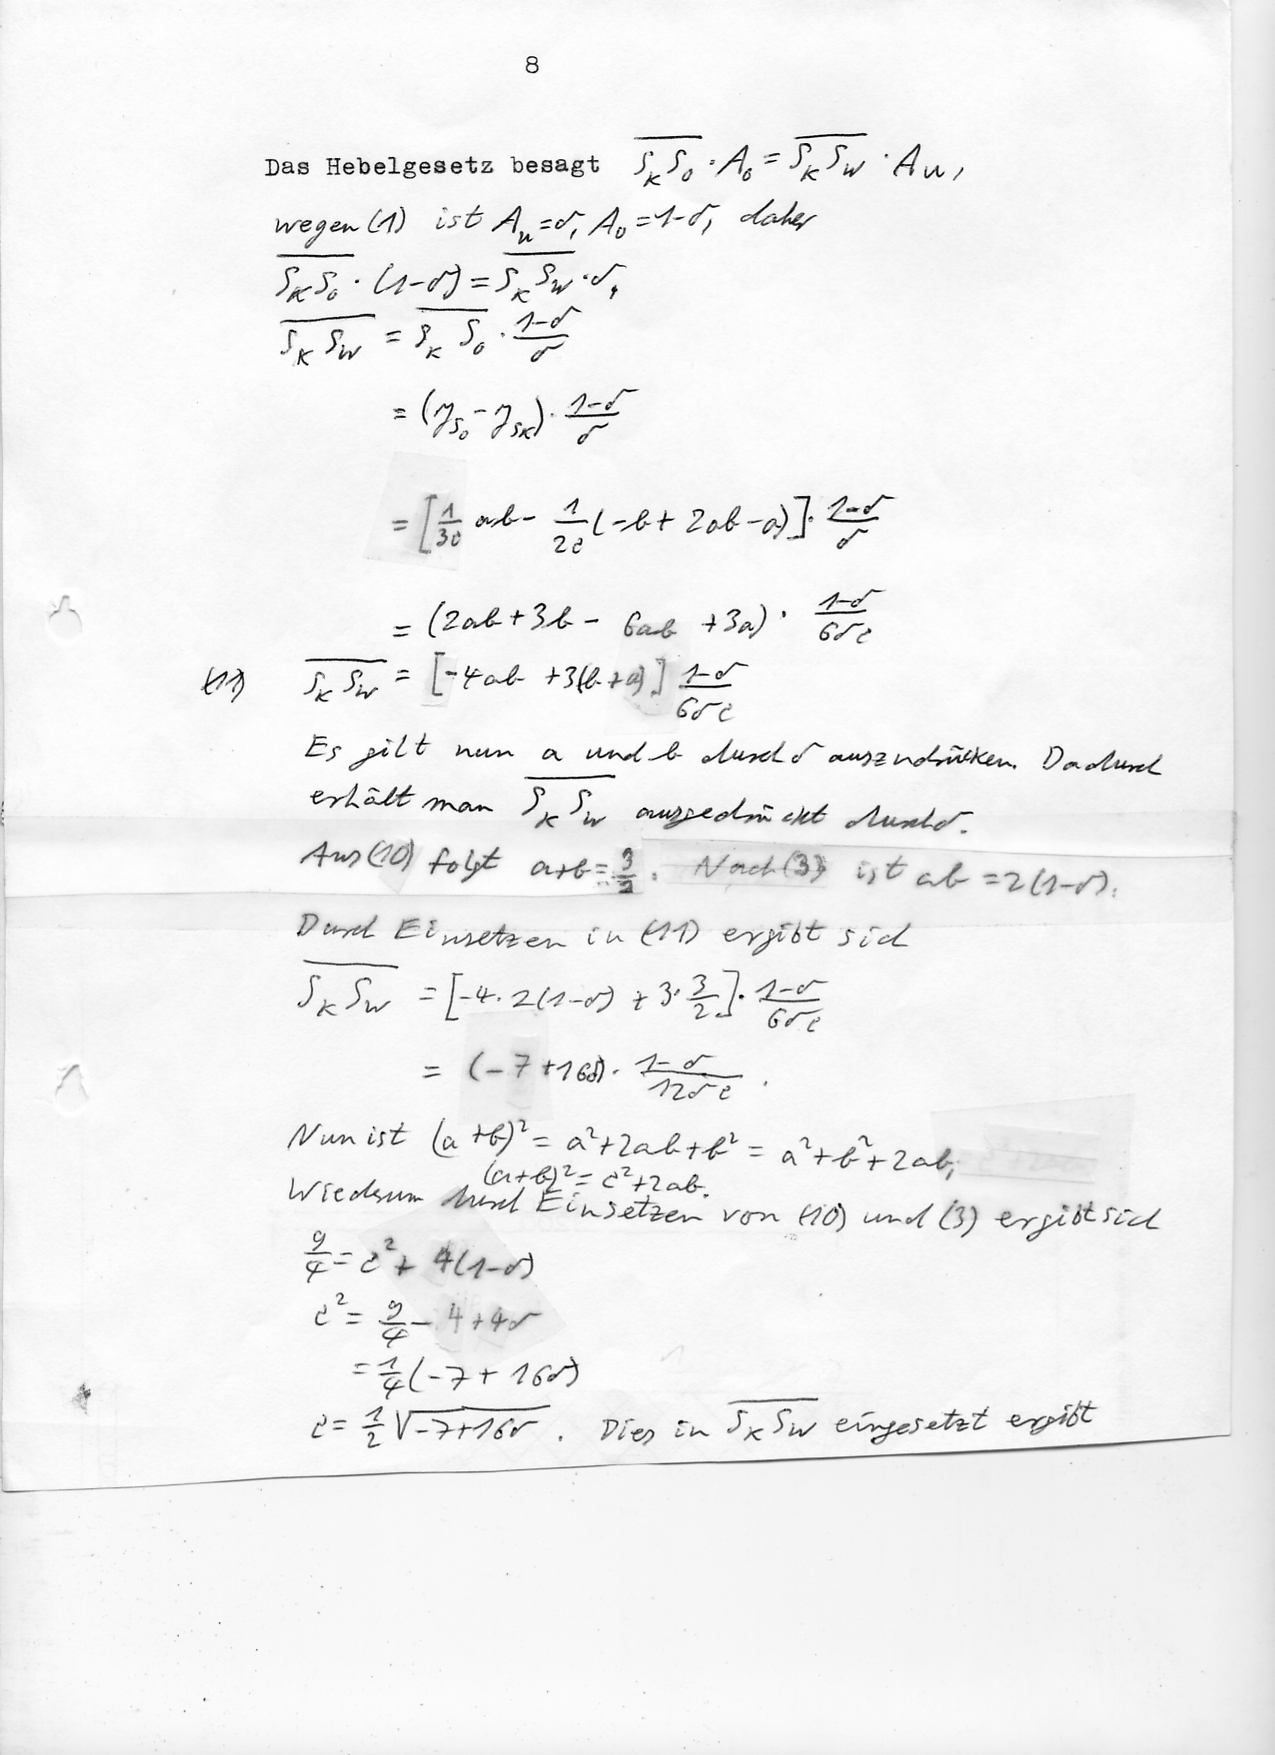 8
Das Hebelgesetz besagt $\overline{S_K S_o} \cdot A_o = \overline{S_K S_W} \cdot A_u$,
wegen (1) ist $A_u = \sigma$, $A_o = 1-\sigma$, daher
$\overline{S_K S_o} \cdot (1-\sigma) = \overline{S_K S_W} \cdot \sigma$,
$\overline{S_K S_W} = \overline{S_K S_o} \cdot \frac{1-\sigma}{\sigma}$
$= (y_{S_o} - y_{S_K}) \cdot \frac{1-\sigma}{\sigma}$
$= [\frac{1}{3c} ab - \frac{1}{2c}(-b + 2ab - a)] \cdot \frac{1-\sigma}{\sigma}$
$= (2ab + 3b - 6ab + 3a) \cdot \frac{1-\sigma}{6\sigma c}$
(11) $\overline{S_K S_W} = [-4ab + 3(b+a)] \frac{1-\sigma}{6\sigma c}$
Es gilt nun a und b durch σ auszudrücken. Dadurch
erhält man $\overline{S_K S_W}$ ausgedrückt durch σ.
Aus (10) folgt $a+b = \frac{3}{2}$. Nach (3) ist $ab = 2(1-\sigma)$.
Durch Einsetzen in (11) ergibt sich
$\overline{S_K S_W} = [-4 \cdot 2(1-\sigma) + 3 \cdot \frac{3}{2}] \cdot \frac{1-\sigma}{6\sigma c}$
$= (-7 + 16\sigma) \cdot \frac{1-\sigma}{12\sigma c}$.
Nun ist $(a+b)^2 = a^2 + 2ab + b^2 = a^2 + b^2 + 2ab$,
$(a+b)^2 = c^2 + 2ab$.
Wiederum durch Einsetzen von (10) und (3) ergibt sich
$\frac{9}{4} = c^2 + 4(1-\sigma)$
$c^2 = \frac{9}{4} - 4 + 4\sigma$
$= \frac{1}{4}(-7 + 16\sigma)$
$c = \frac{1}{2}\sqrt{-7+16\sigma}$. Dies in $\overline{S_K S_W}$ eingesetzt ergibt